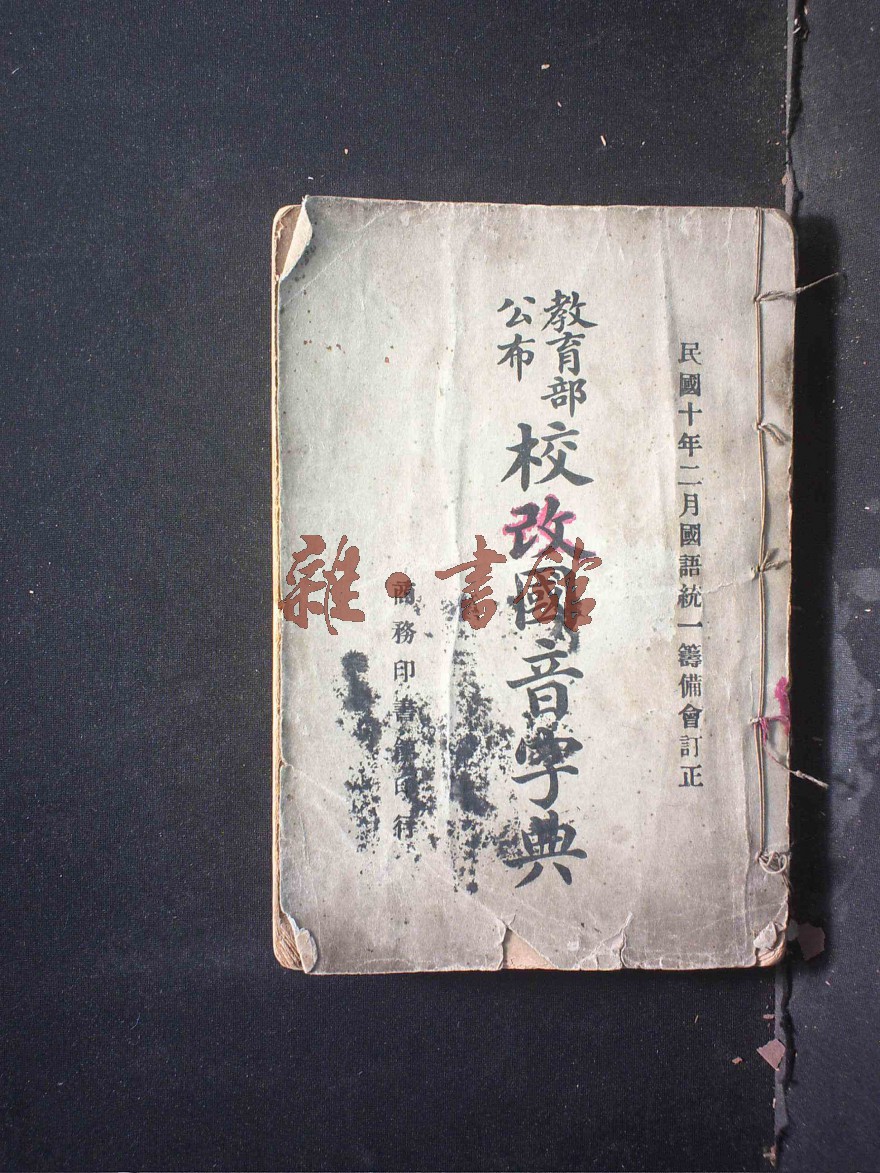 民國十年二月國語統一籌備會訂正
教育部
公布
校改國音字典
商務印書館印行
雜·書館